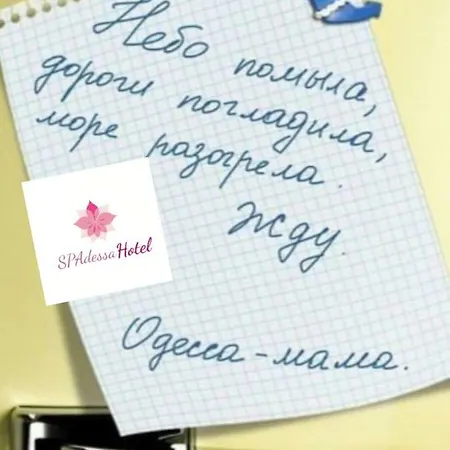 Небо помыла,
дороги погладила,
море разогрела.
Жду.
SPAdessa Hotel
Одесса-мама.